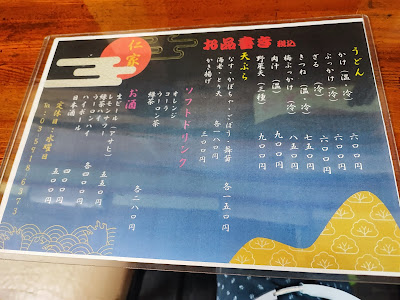 お品書き 税込
うどん
かけ（温、冷） 六〇〇円
ぶっかけ（冷） 六〇〇円
ざる（冷） 六〇〇円
きつね（温） 七五〇円
梅ぶっかけ（冷） 八五〇円
肉汁（温） 九〇〇円
野菜天（三種） 九〇〇円
天ぷら
なす・かぼちゃ・ごぼう・舞茸 各一五〇円
海老・とり天 各一八〇円
かき揚げ 三〇〇円
ソフトドリンク
オレンジ
コーラ
ウーロン茶
緑茶 各二八〇円
お酒
生ビール（アサヒ） 五五〇円
レモンサワー
緑茶ハイ
ウーロンハイ 各四〇〇円
ハイボール 四〇〇円
日本酒 五〇〇円
仁家
定休日：水曜日